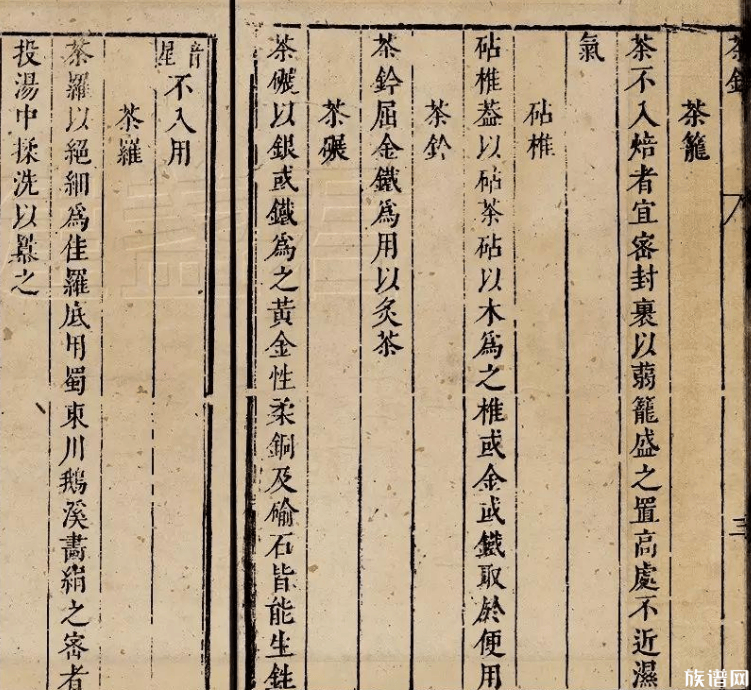 茶錄
三
茶籠
茶不入焙者宜密封裹以蒻籠盛之置高處不近濕
氣
砧椎
砧椎葢以砧茶砧以木為之椎或金或鐵取於便用
茶鈐
茶鈐屈金鐵為用以炙茶
茶碾
茶碾以銀或鐵為之黃金性柔銅及碖石皆能生鉎
音星不入用
茶羅
茶羅以絕細為佳羅底用蜀東川鵝溪畵絹之密者
投湯中揉洗以羃之
族谱网